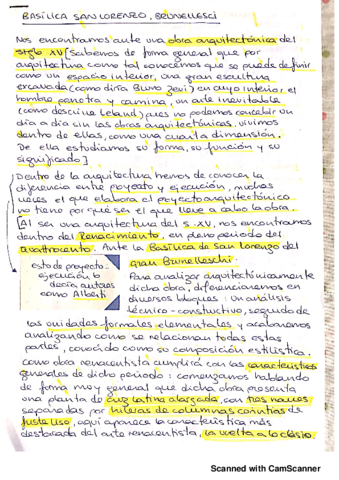 BASÍLICA SAN LORENZO, BRUNELLESCI
Nos encontramos ante una obra arquitectónica del
siglo XV [Sabemos de forma general que por
arquitectura como tal conocemos que se puede definir
como un espacio interior, una gran escultura
excavada (como diría Bruno Zevi) en cuyo interior, el
hombre penetra y camina, un arte inevitable
(como describe Leland) pues no podemos concebir un
día a día sin las obras arquitectónicas, vivimos
dentro de ellas, como una cuarta dimensión.
De ella estudiamos su forma, su función y su
significado]
Dentro de la arquitectura hemos de conocer la
diferencia entre proyecto y ejecución, muchas
veces el que elabora el proyecto arquitectónico
no tiene por qué ser el que lleve a cabo la obra.
[Al ser una arquitectura del s. XV, nos encontramos
dentro del Renacimiento, en pleno periodo del
Quattrocento. Ante la Basílica de San Lorenzo del
gran Brunelleschi.
esto de proyecto-
ejecución, lo
decía autores
como Alberti
Para analizar arquitectónicamente
dicha obra, diferenciaremos en
diversos bloques: un análisis
técnico-constuctivo, seguido de
las unidades formales elementales y acabaremos
analizando como se relacionan todas estas
partes, conocido como su composición estilística.
Como obra renacentista cumplirá con las características
generales de dicho periodo: comenzamos hablando
de forma muy general que dicha obra presenta
una planta de cruz latina alargada, con tres naves
separadas por hileras de columnas corintias de
fuste liso, aquí aparece la característica más
destacada del arte renacentista, la vuelta a lo clásico.
Scanned with CamScanner